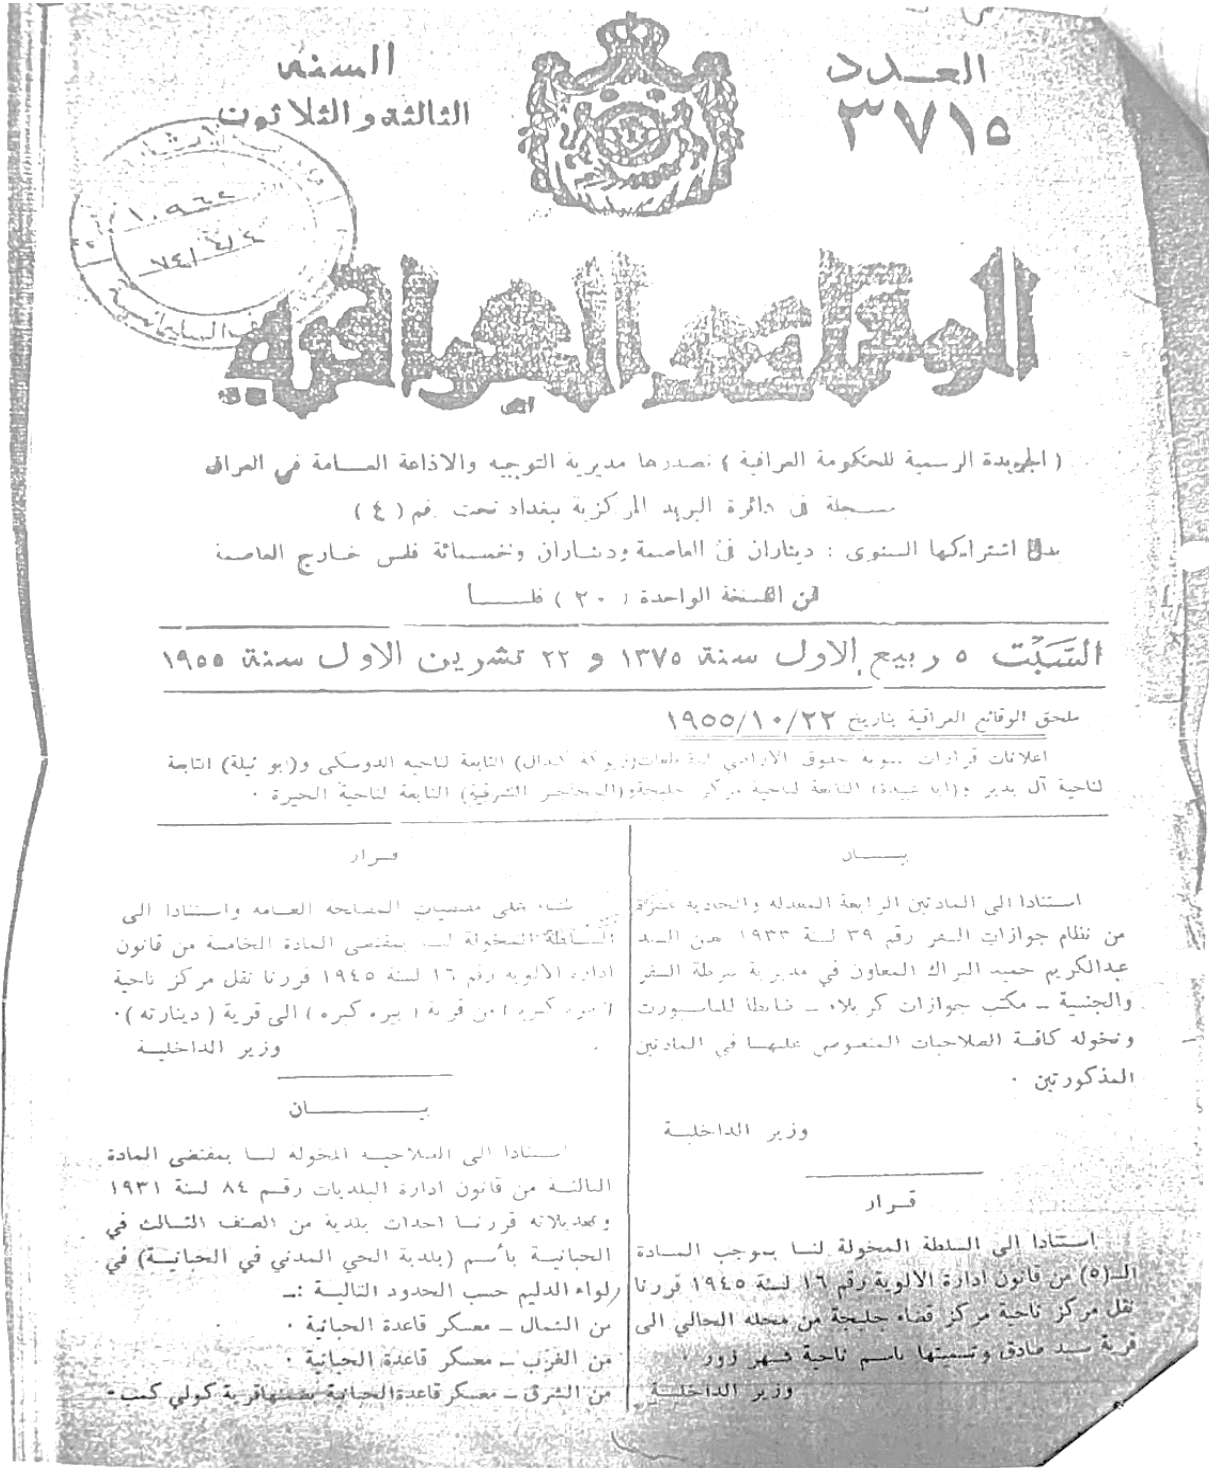 العدد
٣٧١٥
السنة
الثالثة والثلاثون
الوقائع العراقية
( الجريدة الرسمية للحكومة العراقية ) تصدرها مديرية التوجيه والاذاعة العامة في العراق
مسجلة في دائرة البريد المركزية ببغداد تحت رقم ( ٤ )
بدل اشتراكها السنوى : ديناران في العاصمة وديناران وخمسمائة فلس خارج العاصمة
ثمن النسخة الواحدة ( ٢٠ ) فلسا
السَّبْت ٥ ربيع الاول سنة ١٣٧٥ و ٢٢ تشرين الاول سنة ١٩٥٥
ملحق الوقائع العراقية بتاريخ ٢٢/١٠/١٩٥٥
اعلانات قرارات تسوية حقوق الاراضي التابعة لناحية الدوسكي و(ابو تيلة) التابعة
لناحية آل بدير و التابعة لناحية مركز حلبجة و الشرقية) التابعة لناحية الحيرة ٠
بيان
استنادا الى المادتين الرابعة المعدلة والحادية عشرة
من نظام جوازات السفر رقم ٣٩ لسنة ١٩٣٣ عين السيد
عبدالكريم حميد البراك المعاون في مديرية شرطة السفر
والجنسية ــ مكتب جوازات كربلاء ــ ضابطا للباسبورت
ونخوله كافة الصلاحيات المنصوص عليها في المادتين
المذكورتين ٠
وزير الداخلية
قرار
استنادا الى السلطة المخولة لنا بموجب المادة
الـ(٥) من قانون ادارة الالوية رقم ١٦ لسنة ١٩٤٥ قررنا
نقل مركز ناحية مركز قضاء حلبجة من محله الحالي الى
قرية سيد صادق وتسميتها باسم ناحية شهر زور ٠
وزير الداخلية
قرار
بناء على مقتضيات المصلحة العامة واستنادا الى
السلطة المخولة لنا بمقتضى المادة الخامسة من قانون
ادارة الالوية رقم ١٦ لسنة ١٩٤٥ قررنا نقل مركز ناحية
من قرية ( بيره كبره ) الى قرية ( دينارته ) ٠
وزير الداخلية
بيان
استنادا الى الصلاحية المخولة لنا بمقتضى المادة
الثالثة من قانون ادارة البلديات رقم ٨٤ لسنة ١٩٣١
وتعديلاته قررنا احداث بلدية من الصنف الثالث في
الحبانية بأسم (بلدية الحي المدني في الحبانية) في
لواء الدليم حسب الحدود التالية :ــ
من الشمال ــ معسكر قاعدة الحبانية ٠
من الغرب ــ معسكر قاعدة الحبانية ٠
من الشرق ــ معسكر قاعدة الحبانية بضمنها قرية كولي كمب ـ